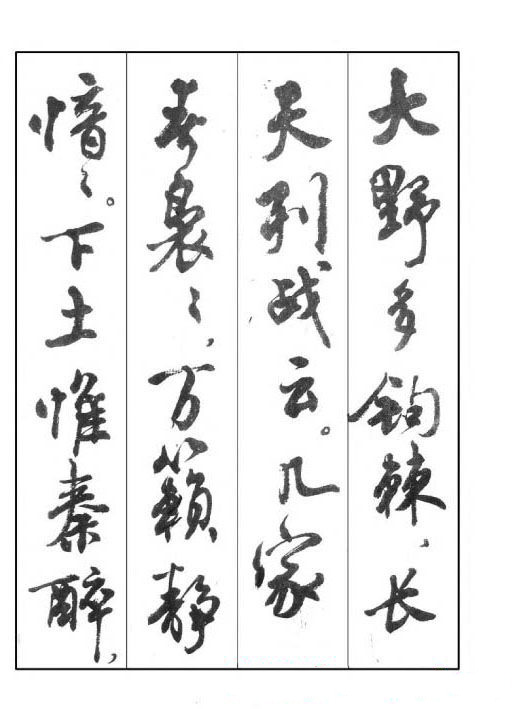 大野多钩棘、长
天列战云。几家
春袅々，万籁静
愔々。下土惟秦醉，